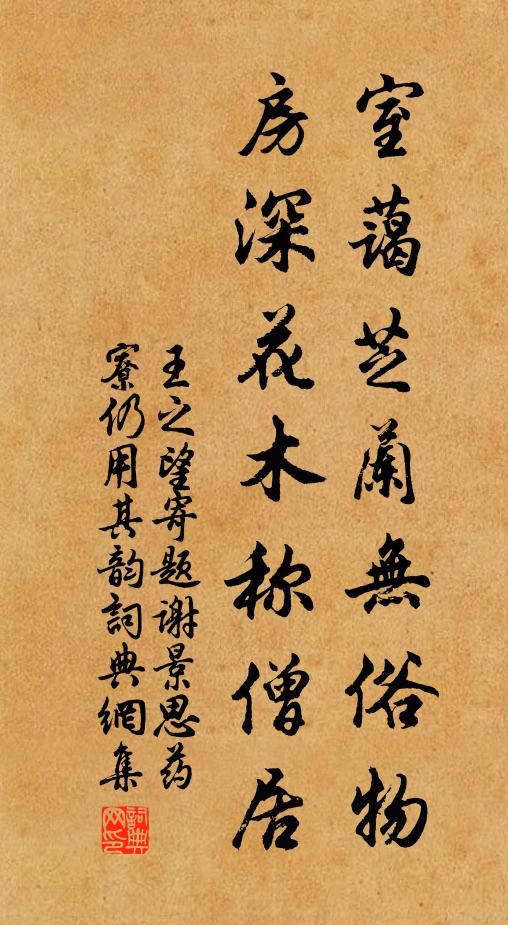 室蔼芝蘭無俗物
房深花木称僧居
王之望寄题谢景思药
寮仍用其韵詞典網集
詞典网印